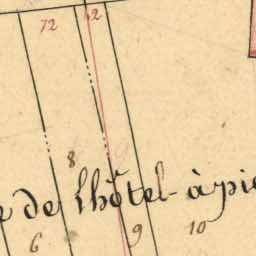 72 62
8
de l'hôtel-à-pie
6 9 10